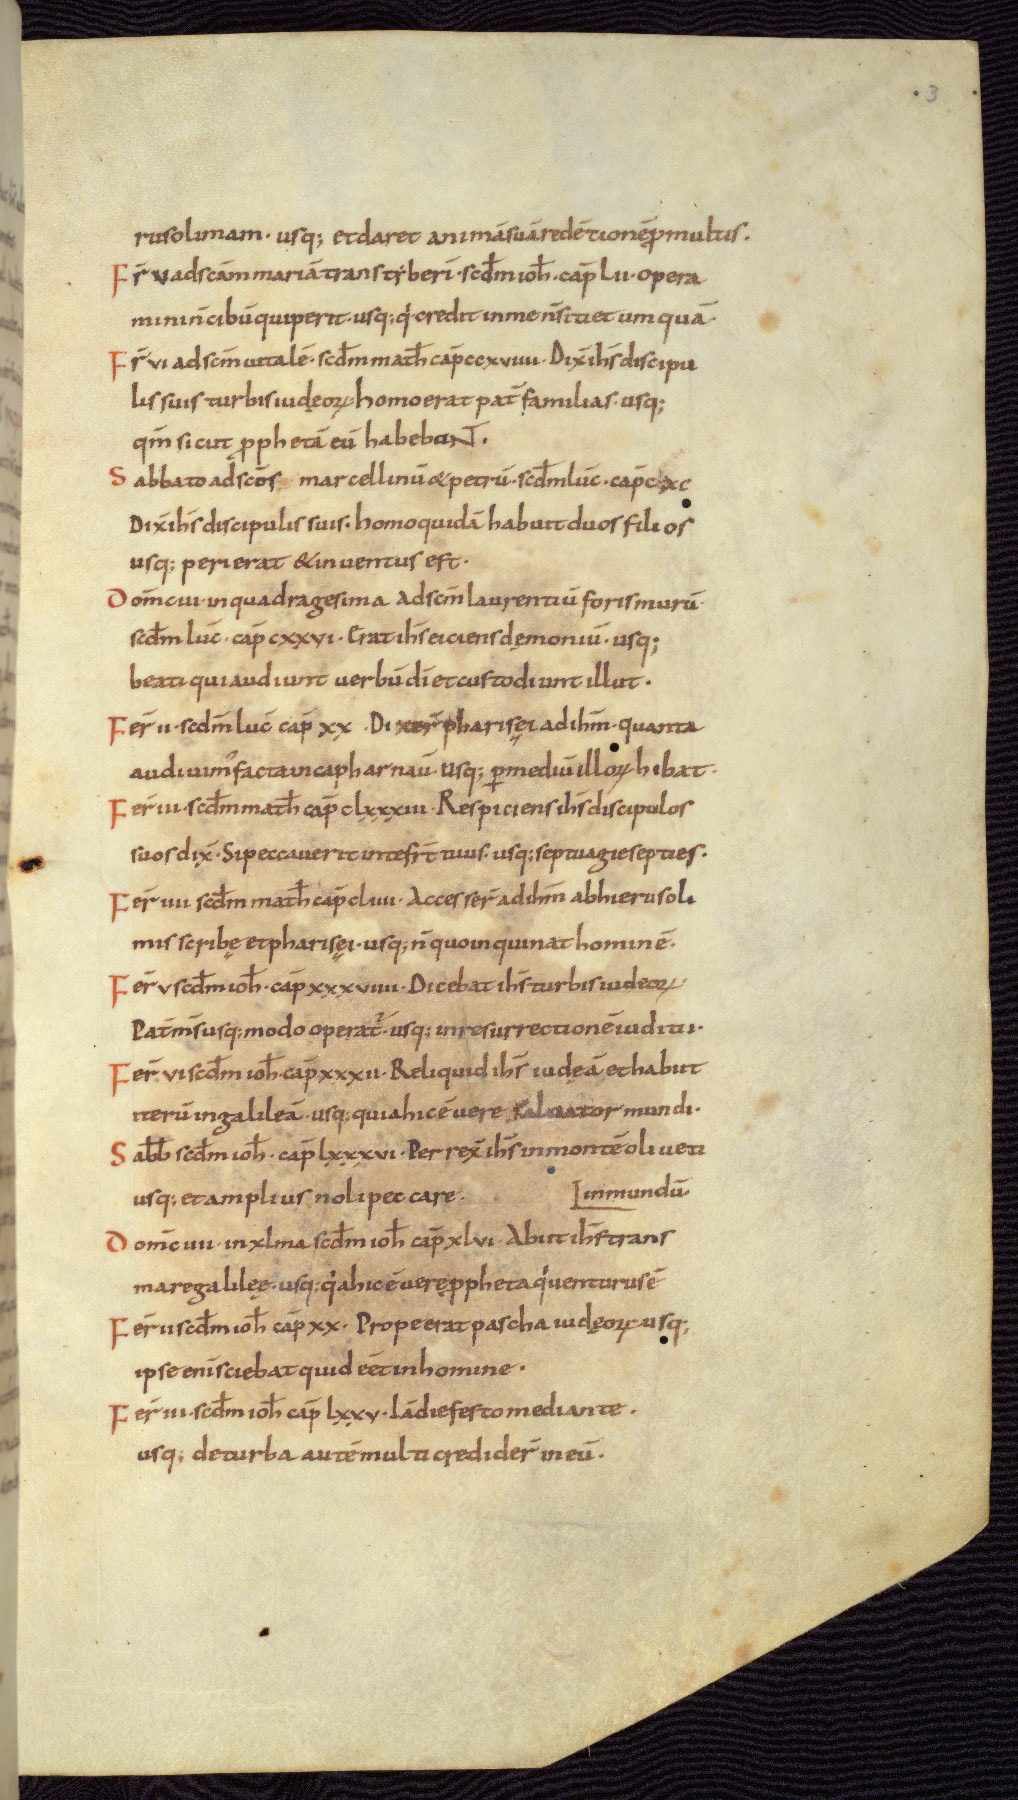 3
rusolimam · usq; et daret animā suā redētionē p multis.
Fr̄ v ad scām mariā trans tẏberī · scd̄m ioh̄ · cap̄ lii · opera
mini n̄ cibū qui perit · usq; q̇ credit in me n̄ sitiet umquā ·
Fr̄ vi ad scm̄ uitalē · scd̄m math̄ cap̄ ccxviiii · Dix̄ ih̄s discipu
lis suis turbis iudęoꝝ homo erat pat̄ familias · usq;
qm̄ sicut prophetā eū habebant.
Sabbato ad scōs marcellinū & petrū · scd̄m luc̄ · cap̄ clxc
Dix̄ ih̄s discipulis suis · homo quidā habuit duos filios
usq; perierat & inuentus est ·
Domc̄ iii · in quadragesima ad scm̄ laurentiū foris murū ·
scd̄m luc̄ · cap̄ cxxvi · Erat ih̄s eiciens dęmoniū · usq;
beati qui audiunt uerbū dī et custodiunt illut ·
Fer̄ ii · scd̄m luc̄ cap̄ xx · Dixer̄ pharisęi ad ih̄m · quanta
audiuim᾿ facta in capharnaū usq; p mediū illoꝝ hibat ·
Fer̄ iii · scd̄m math̄ cap̄ clxxxiii · Respiciens ih̄s discipulos
suos dix̄ · Si peccauerit in te fr̄t tuus · usq; septuagie septies ·
Fer̄ iiii scd̄m math̄ cap̄ cliiii · Accesser̄ ad ih̄m ab hierusoli
mis scribę et pharisęi · usq; n̄ quoinquinat hominē ·
Fer̄ v scd̄m ioh̄ · cap̄ xxxviiii · Dicebat ih̄s turbis iudeoꝝ
Pat̄ m̄s usq; modo operat᾿ · usq; in resurrectionē iuditii ·
Fer̄ vi scd̄m ioh̄ · cap̄ xxxii · Reliquid ih̄s iudęā et habiit
iterū in galileā · usq; quia hic ē uere saluator mundi ·
Sabb̄ scd̄m ioh̄ · cap̄ lxxxvi · Perrex̄ ih̄s in montē oliueti
usq; et amplius noli peccare · in mundū
Domc̄ iiii · in xlma scd̄m ioh̄ cap̄ xlvi · Abiit ih̄s trans
mare galilęe · usq; q̇a hic ē uerę ppheta q̇ uenturus ē
Fer̄ ii scd̄m ioh̄ cap̄ xx · Prope erat pascha iudęoꝝ usq;
ipse eni᾿ sciebat quid eēt in homine ·
Fer̄ iii · scd̄m ioh̄ cap̄ lxxv · Iā die festo mediante ·
usq; de turba autē multi credider̄ in eū ·